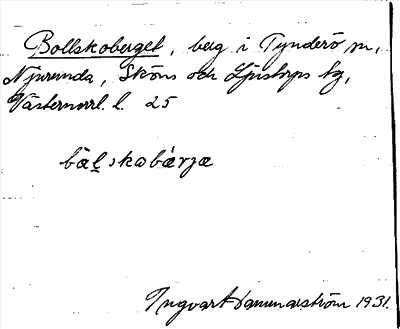 Bollskoberget, berg i Tynderö sn,
Njurunda, Sköns och Ljustorps tg,
Västernorrl. l. 25
bål skabärja
Ingvar Hammarström 1931.